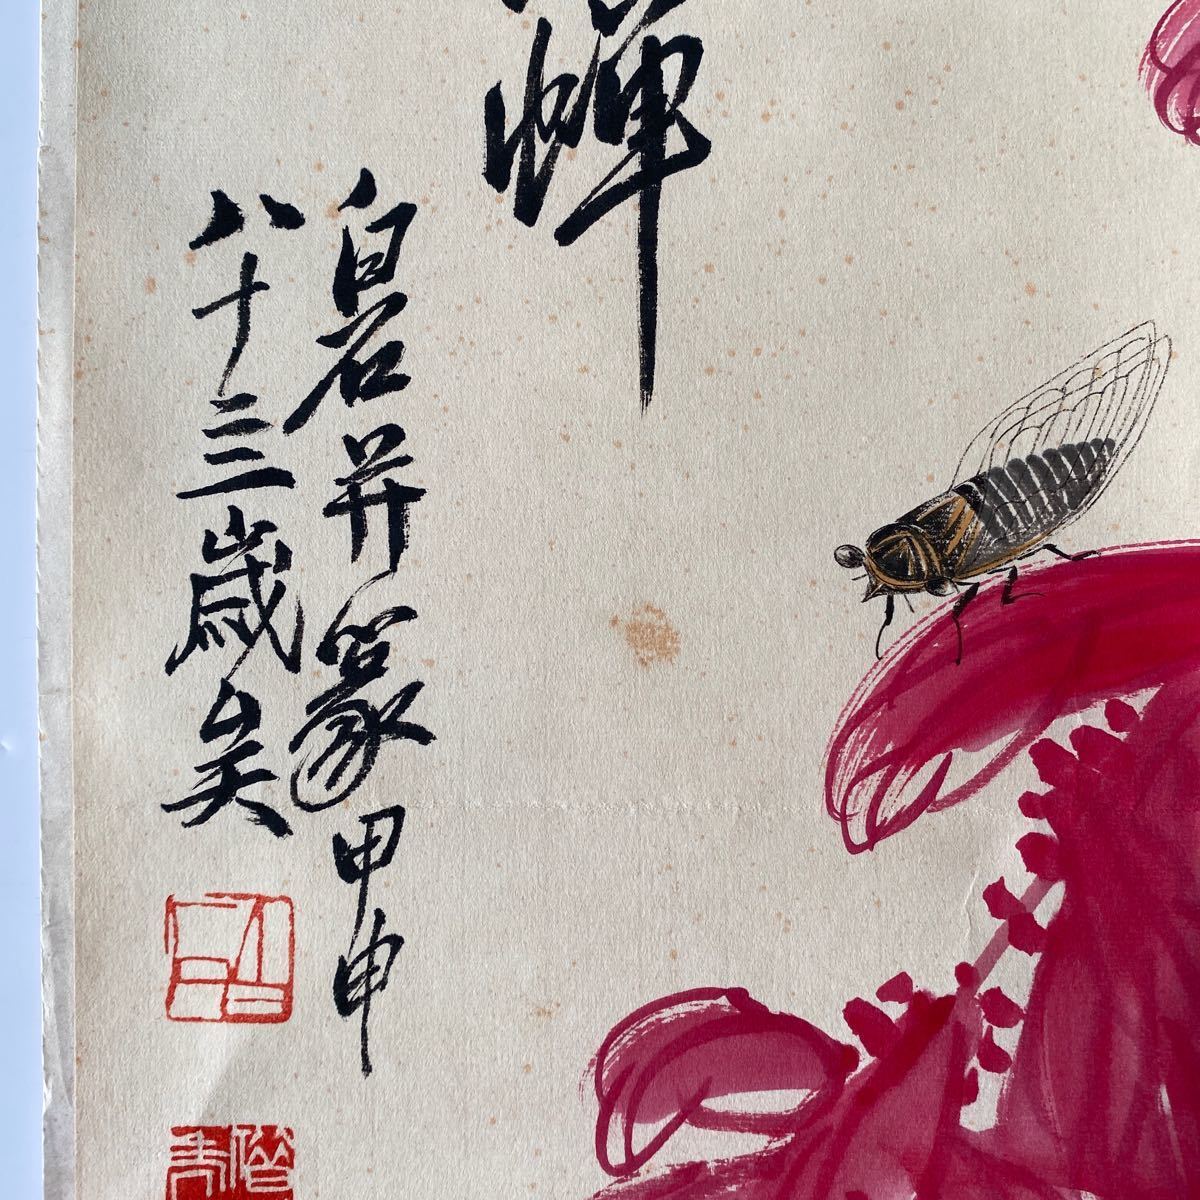 蟬
白石并篆甲申
八十三歲矣